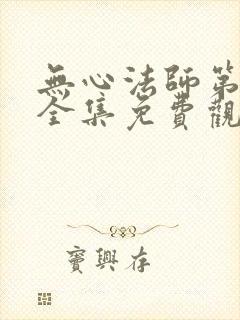 無心法師第
全集免費觀
寶興存